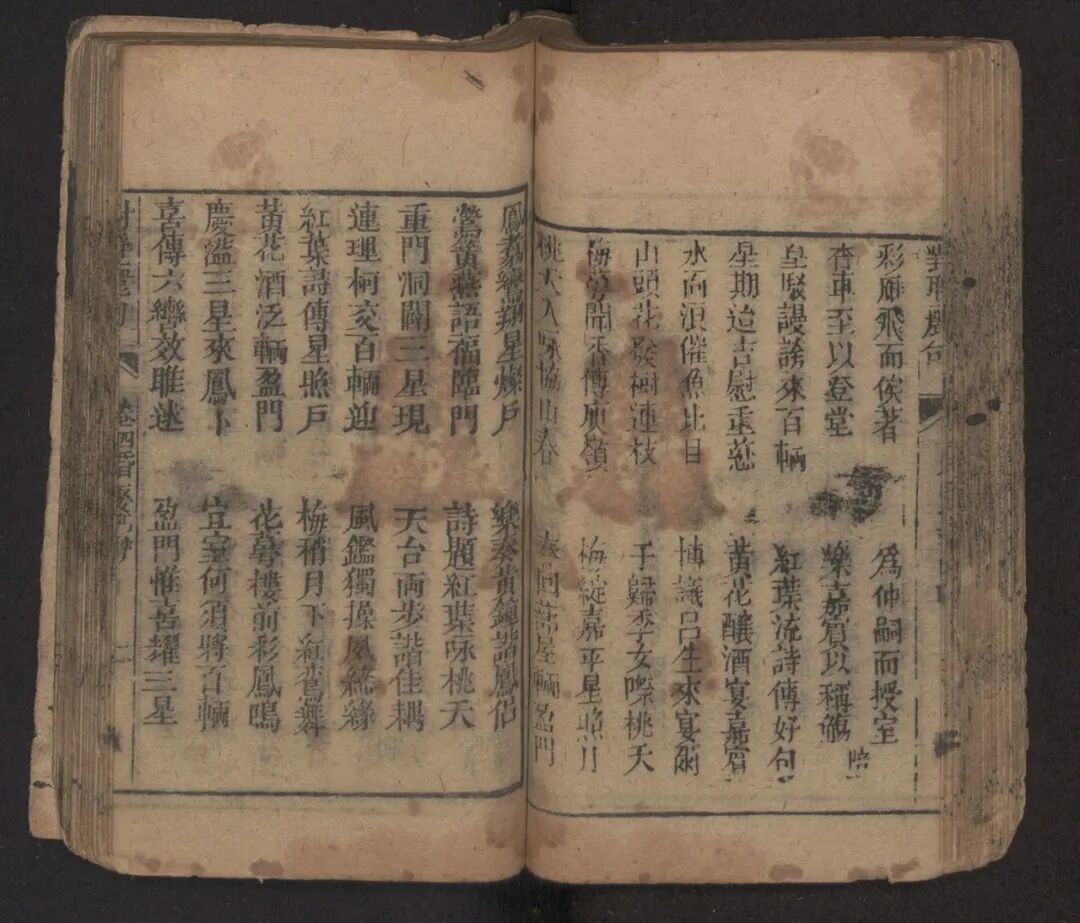 對聯麗句
彩雁飛而俟著
為仲嗣而授室
香車至以登堂
樂嘉賓以稱觴
皇駁謾誇來百輛
紅葉流詩傳好句
星期迨吉慰重慈
黃花釀酒宴嘉賓
水面浪催魚比目
博議呂生來宴爾
山頭花發樹連枝
于歸季女際桃夭
梅萼開香傳庾嶺
梅從嘉平星照戶
桃夭入咏協山春
春回蔀屋輛盈門
鳳翥鸞翔星燦戶
樂奏黃鐘諧鳳侶
鶯簧燕語福臨門
詩題紅葉咏桃夭
重門洞闢三星現
天台兩步諧佳耦
連理柯交百輛迎
風鑑獨操夙締緣
紅葉詩傳星照戶
梅稍月下紅鸞舞
黃花酒泛輛盈門
花萼樓前彩鳳鳴
慶溢三星來鳳卜
宜室何須將百輛
喜傳六轡效雎逑
盈門惟喜耀三星
卷四婚娶